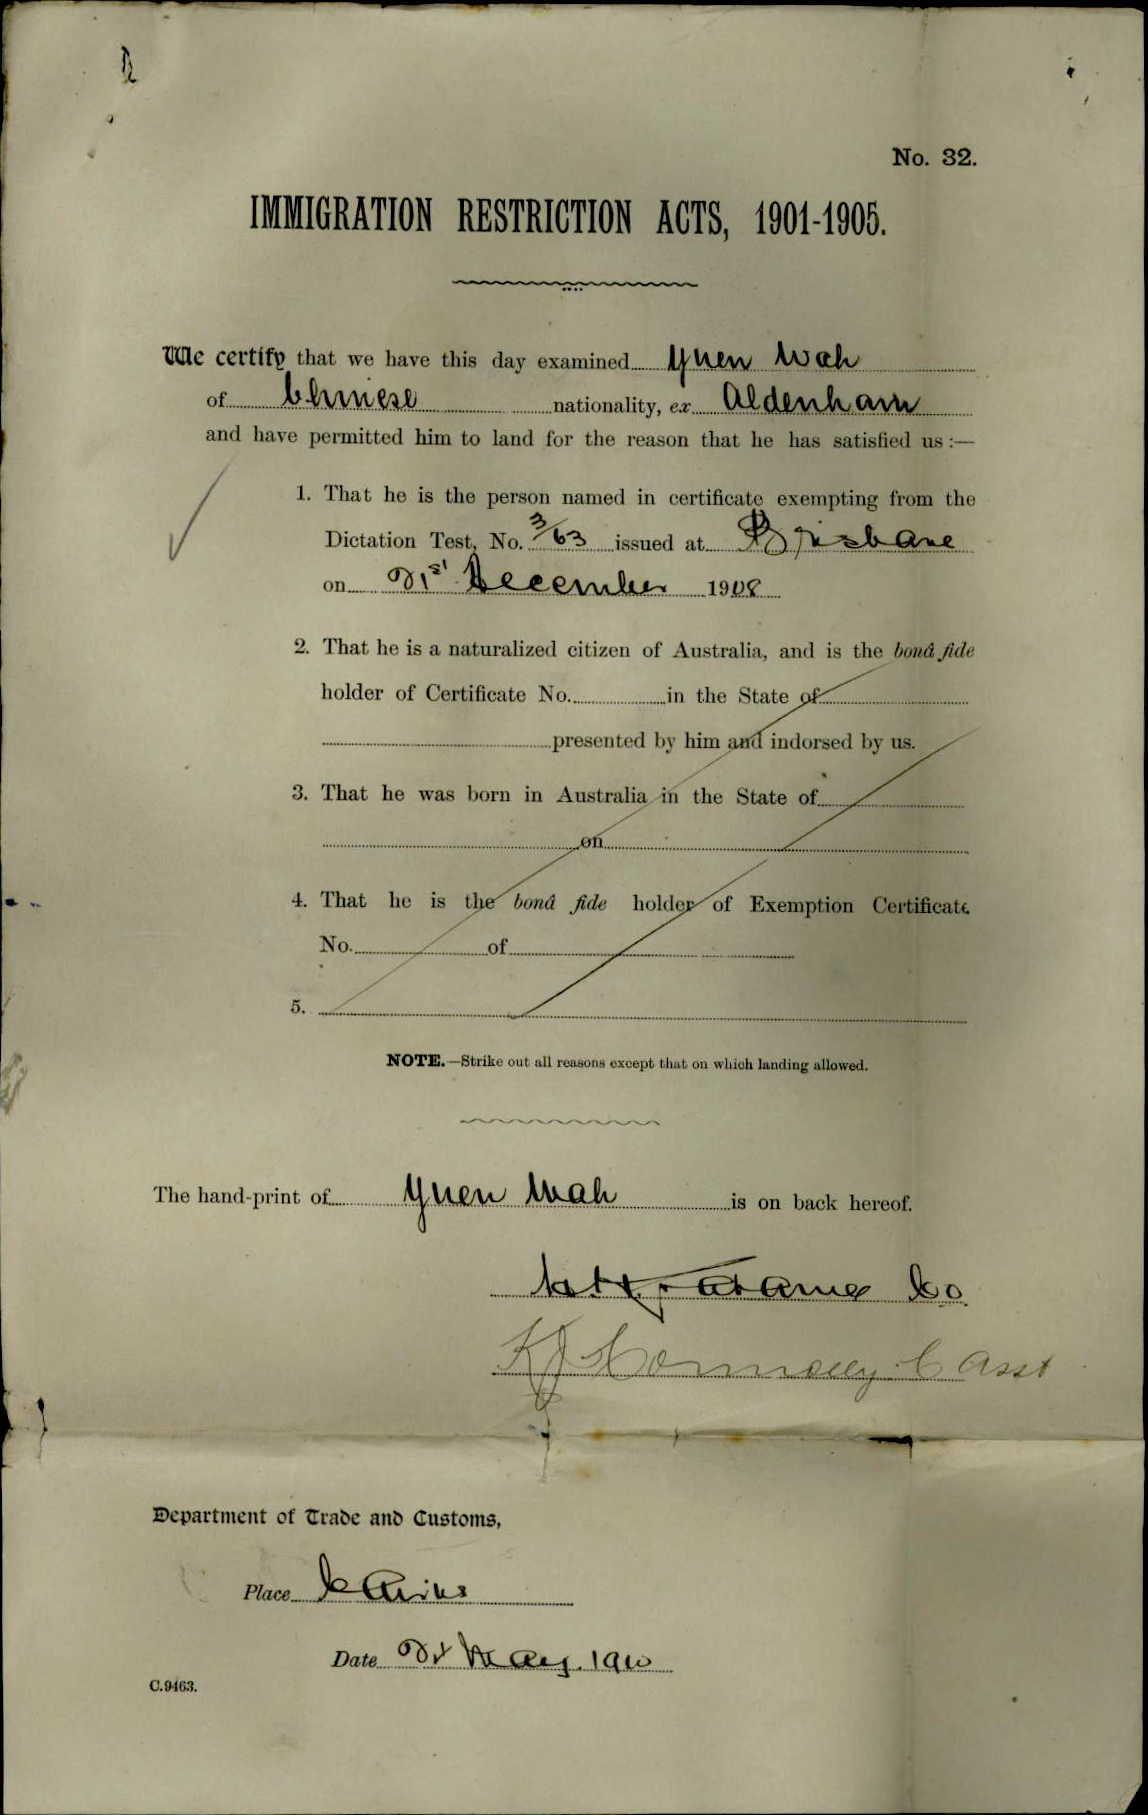 No. 32.
IMMIGRATION RESTRICTION ACTS, 1901-1905.
We certify that we have this day examined Yuen Wah
of Chinese nationality, ex Aldenham
and have permitted him to land for the reason that he has satisfied us :—
1. That he is the person named in certificate exempting from the
Dictation Test, No. 3/63 issued at Brisbane
on 21st December 1908
2. That he is a naturalized citizen of Australia, and is the bonâ fide
holder of Certificate No. in the State of
presented by him and indorsed by us.
3. That he was born in Australia in the State of
on
4. That he is the bonâ fide holder of Exemption Certificate
No. of
5.
NOTE.—Strike out all reasons except that on which landing allowed.
The hand-print of Yuen Wah is on back hereof.
Co
C Asst
Department of Trade and Customs,
Place Cairns
Date May. 1910
C.9463.